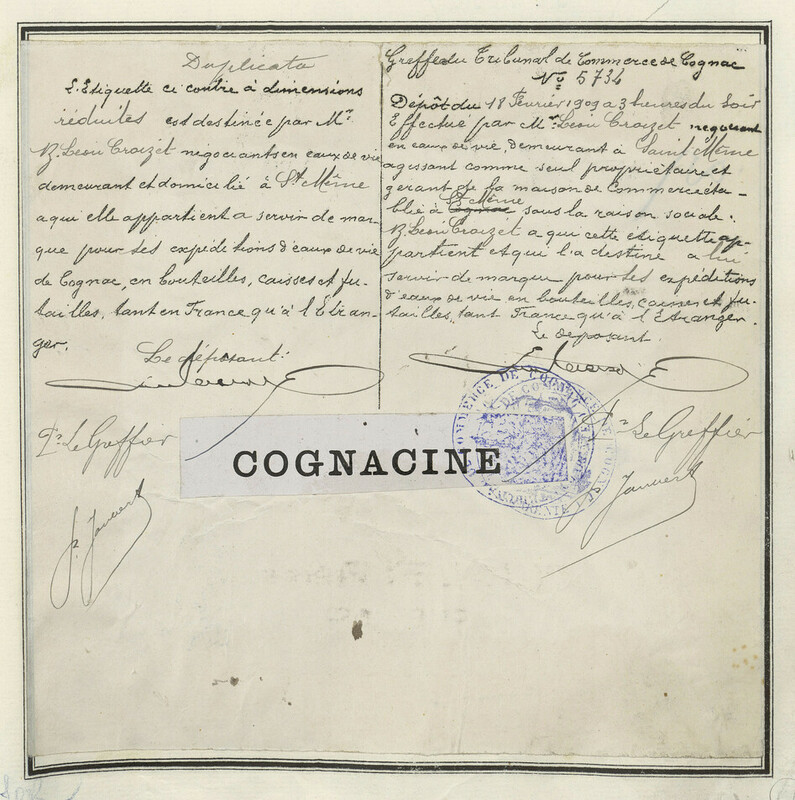 Duplicata
L'Etiquette ci contre à dimensions
réduites est destinée par Mr.
B. Léon Croizet negociants en eaux de vie
demeurant et domicilié à St Même
a qui elle appartient a servir de mar-
que pour ses expéditions d'eaux de vie
de Cognac, en bouteilles, caisses et fu-
tailles, tant en France qu'à l'Etran-
ger.
Le déposant:
Pr. Le Greffier
Greffe du Tribunal de Commerce de Cognac
No 5734
Dépôt du 18 Février 1909 a 3 heures du Soir
Effectué par Mr. Léon Croizet, negociant
en eaux de vie, demeurant à Saint Même
agissant comme seul propriétaire et
gerant de la maison de Commerce éta-
St Même
blie à Cognac sous la raison sociale:
B. Léon Croizet a qui cette étiquette ap-
partient et qui l'a destine a lui
servir de marque pour ses expéditions
d'eaux de vie en bouteilles, caisses et fu-
tailles, tant France qu'à l'Etranger.
Le deposant.
Pr. Le Greffier
COGNACINE